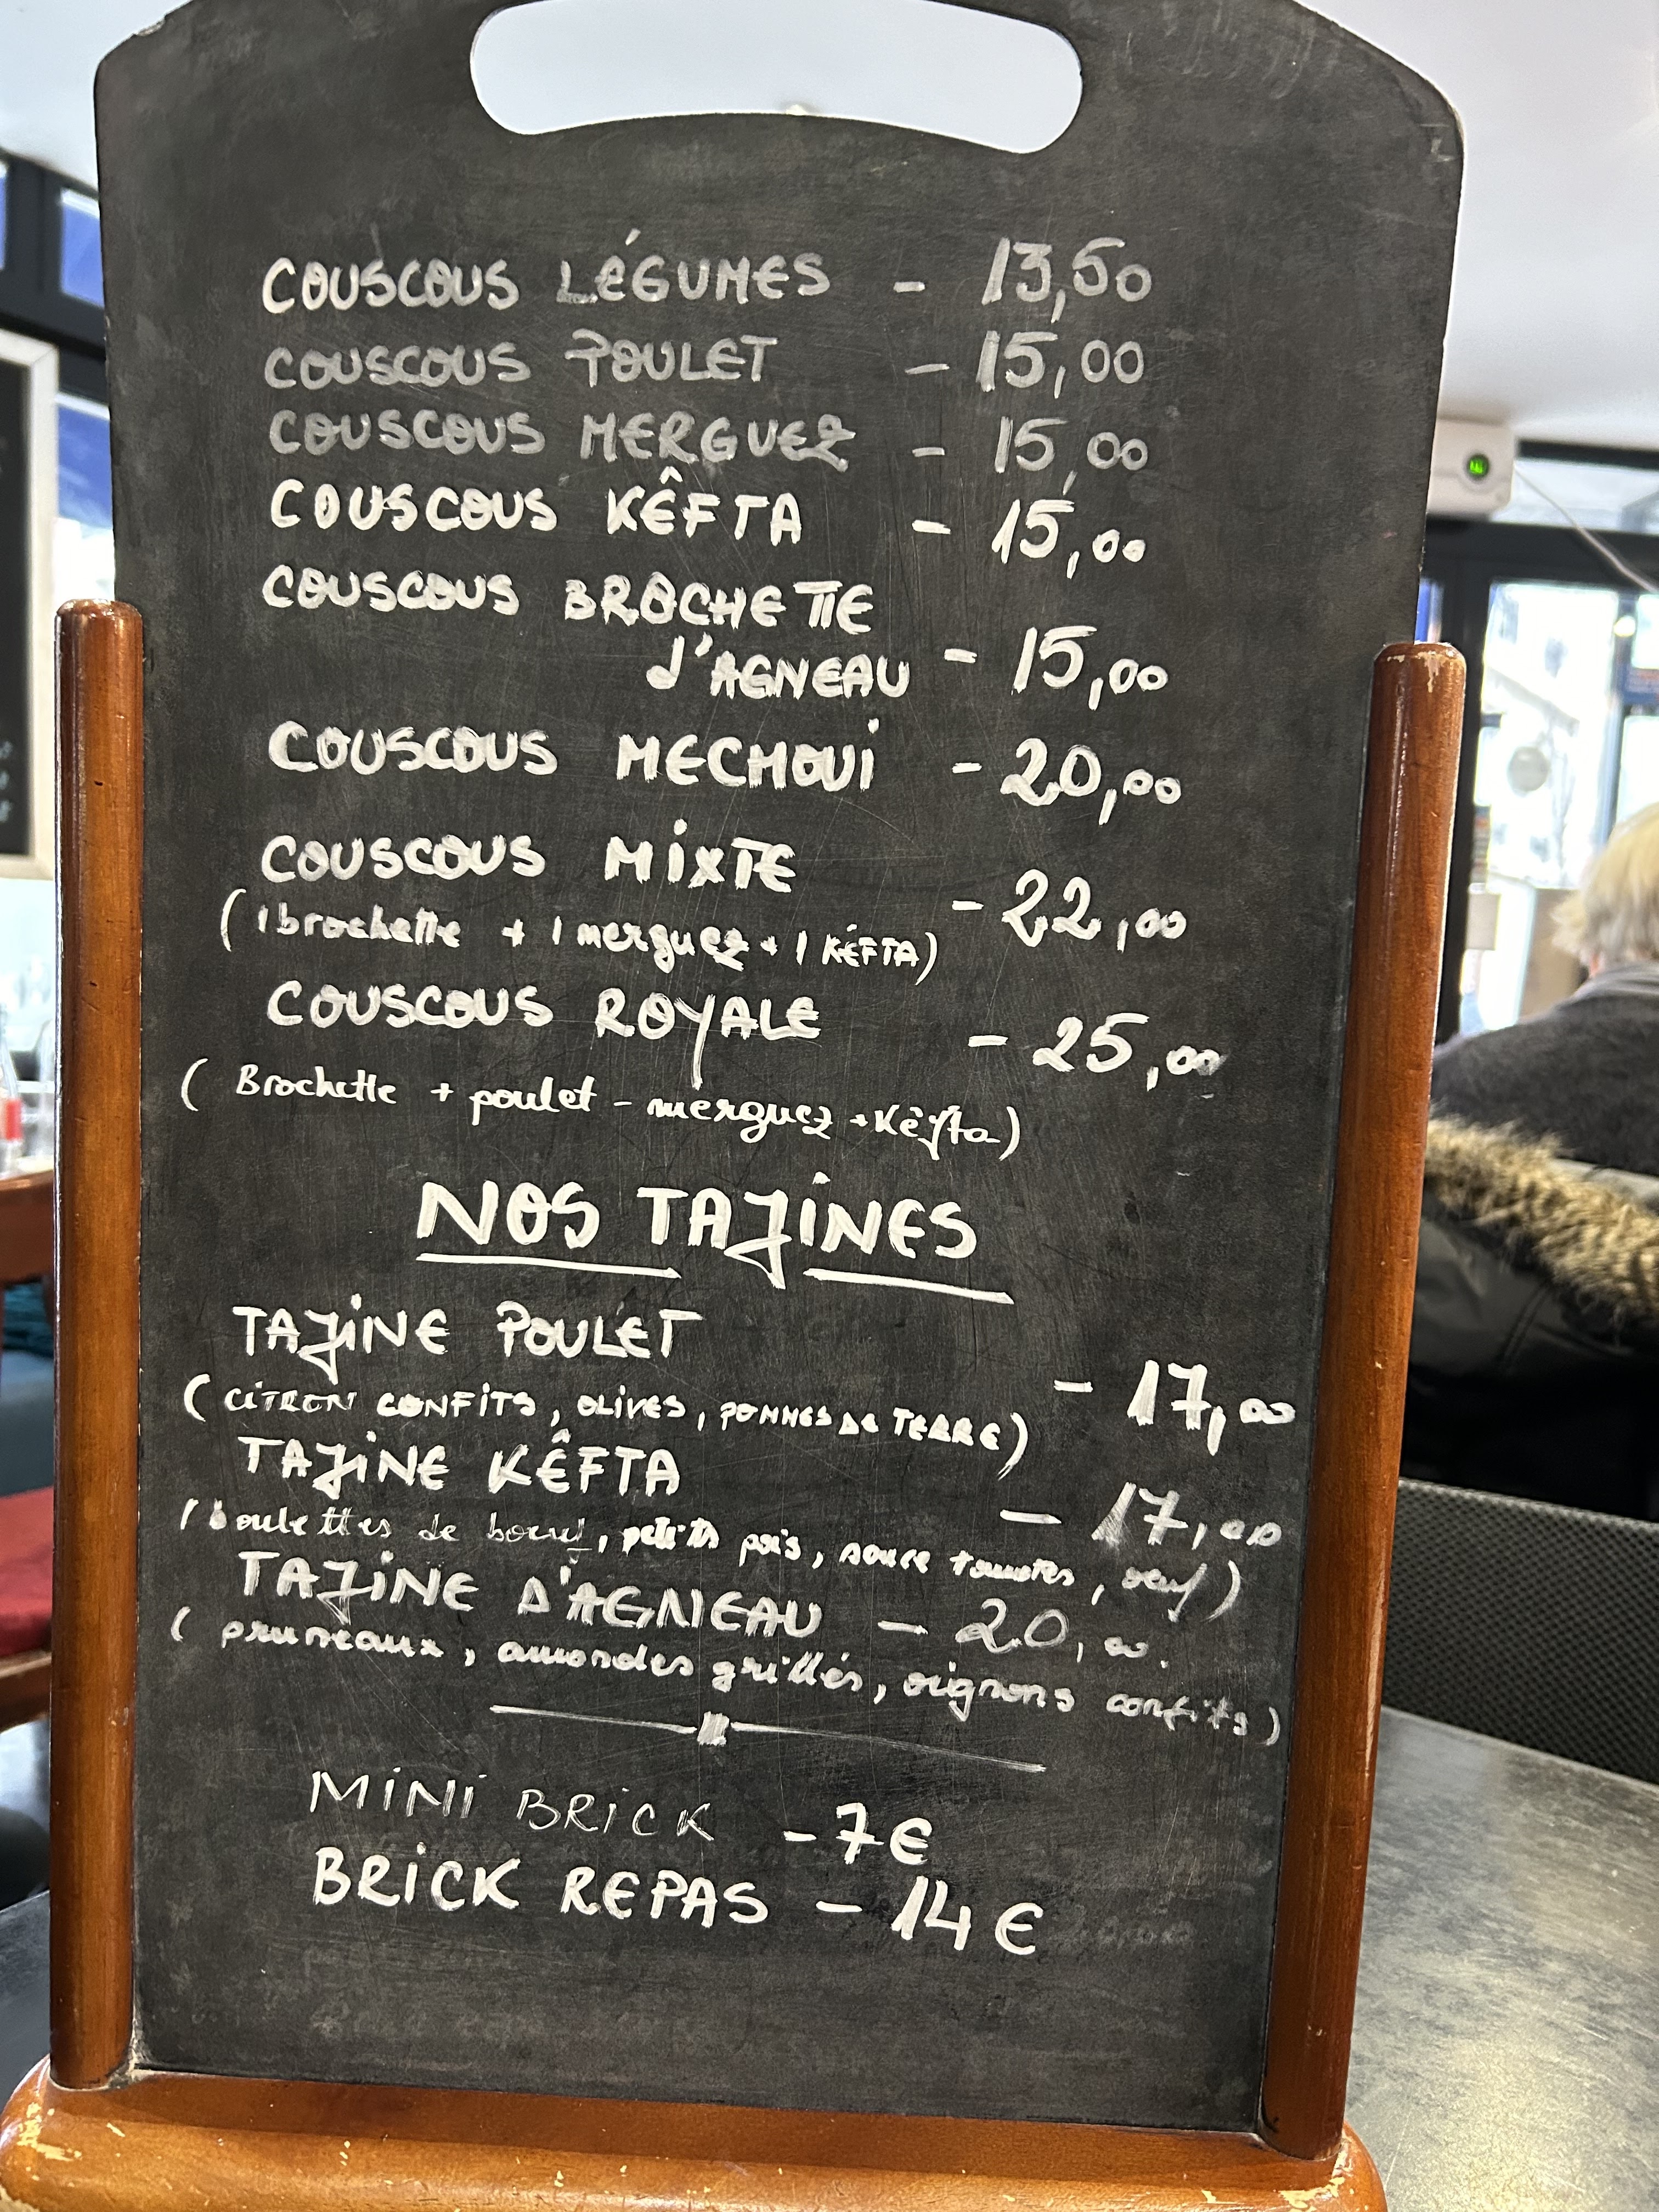 COUSCOUS LÉGUMES - 13,50
COUSCOUS POULET - 15,00
COUSCOUS MERGUEZ - 15,00
COUSCOUS KÊFTA - 15,00
COUSCOUS BROCHETTE
d'AGNEAU - 15,00
COUSCOUS MECHOUI - 20,00
COUSCOUS MIXTE
(1 brochette + 1 merguez + 1 KÉFTA) - 22,00
COUSCOUS ROYALE - 25,00
( Brochette + poulet - merguez + Kêfta)
NOS TAJINES
TAJINE POULET - 17,00
( CITRON CONFITS, OLIVES, POMMES DE TERRE)
TAJINE KÊFTA - 17,00
(boulettes de boeuf, petits pois, sauce tomates, oeuf)
TAJINE D'AGNEAU - 20,00.
( pruneaux, amandes grillés, oignons confits)
MINI BRICK - 7€
BRICK REPAS - 14€